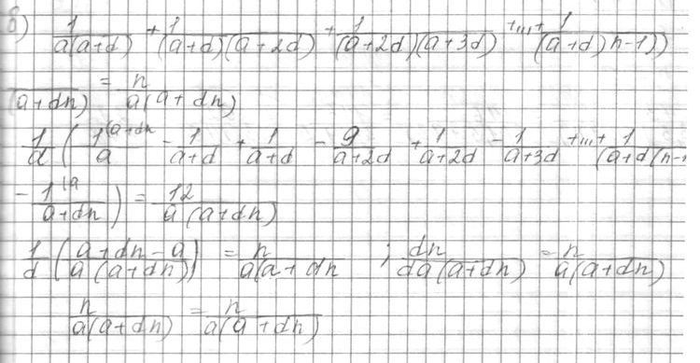 б) 1/(a(a+d)) + 1/((a+d)(a+2d)) + 1/((a+2d)(a+3d)) +...+ 1/((a+d)n-1))
(a+dn) = n/(a(a+dn)
1/d ( 1/a (a+dn - 1/(a+d) + 1/(a+d) - 9/(a+2d) + 1/(a+2d) - 1/(a+3d) +...+ 1/(a+d(n-1
- 1/(a+dn) (a ) = 12/(a(a+dn)
1/d ( (a+dn-a)/(a(a+dn)) ) = n/(a(a+dn ; dn/(da(a+dn) = n/(a(a+dn)
n/(a(a+dn) = n/(a(a+dn)